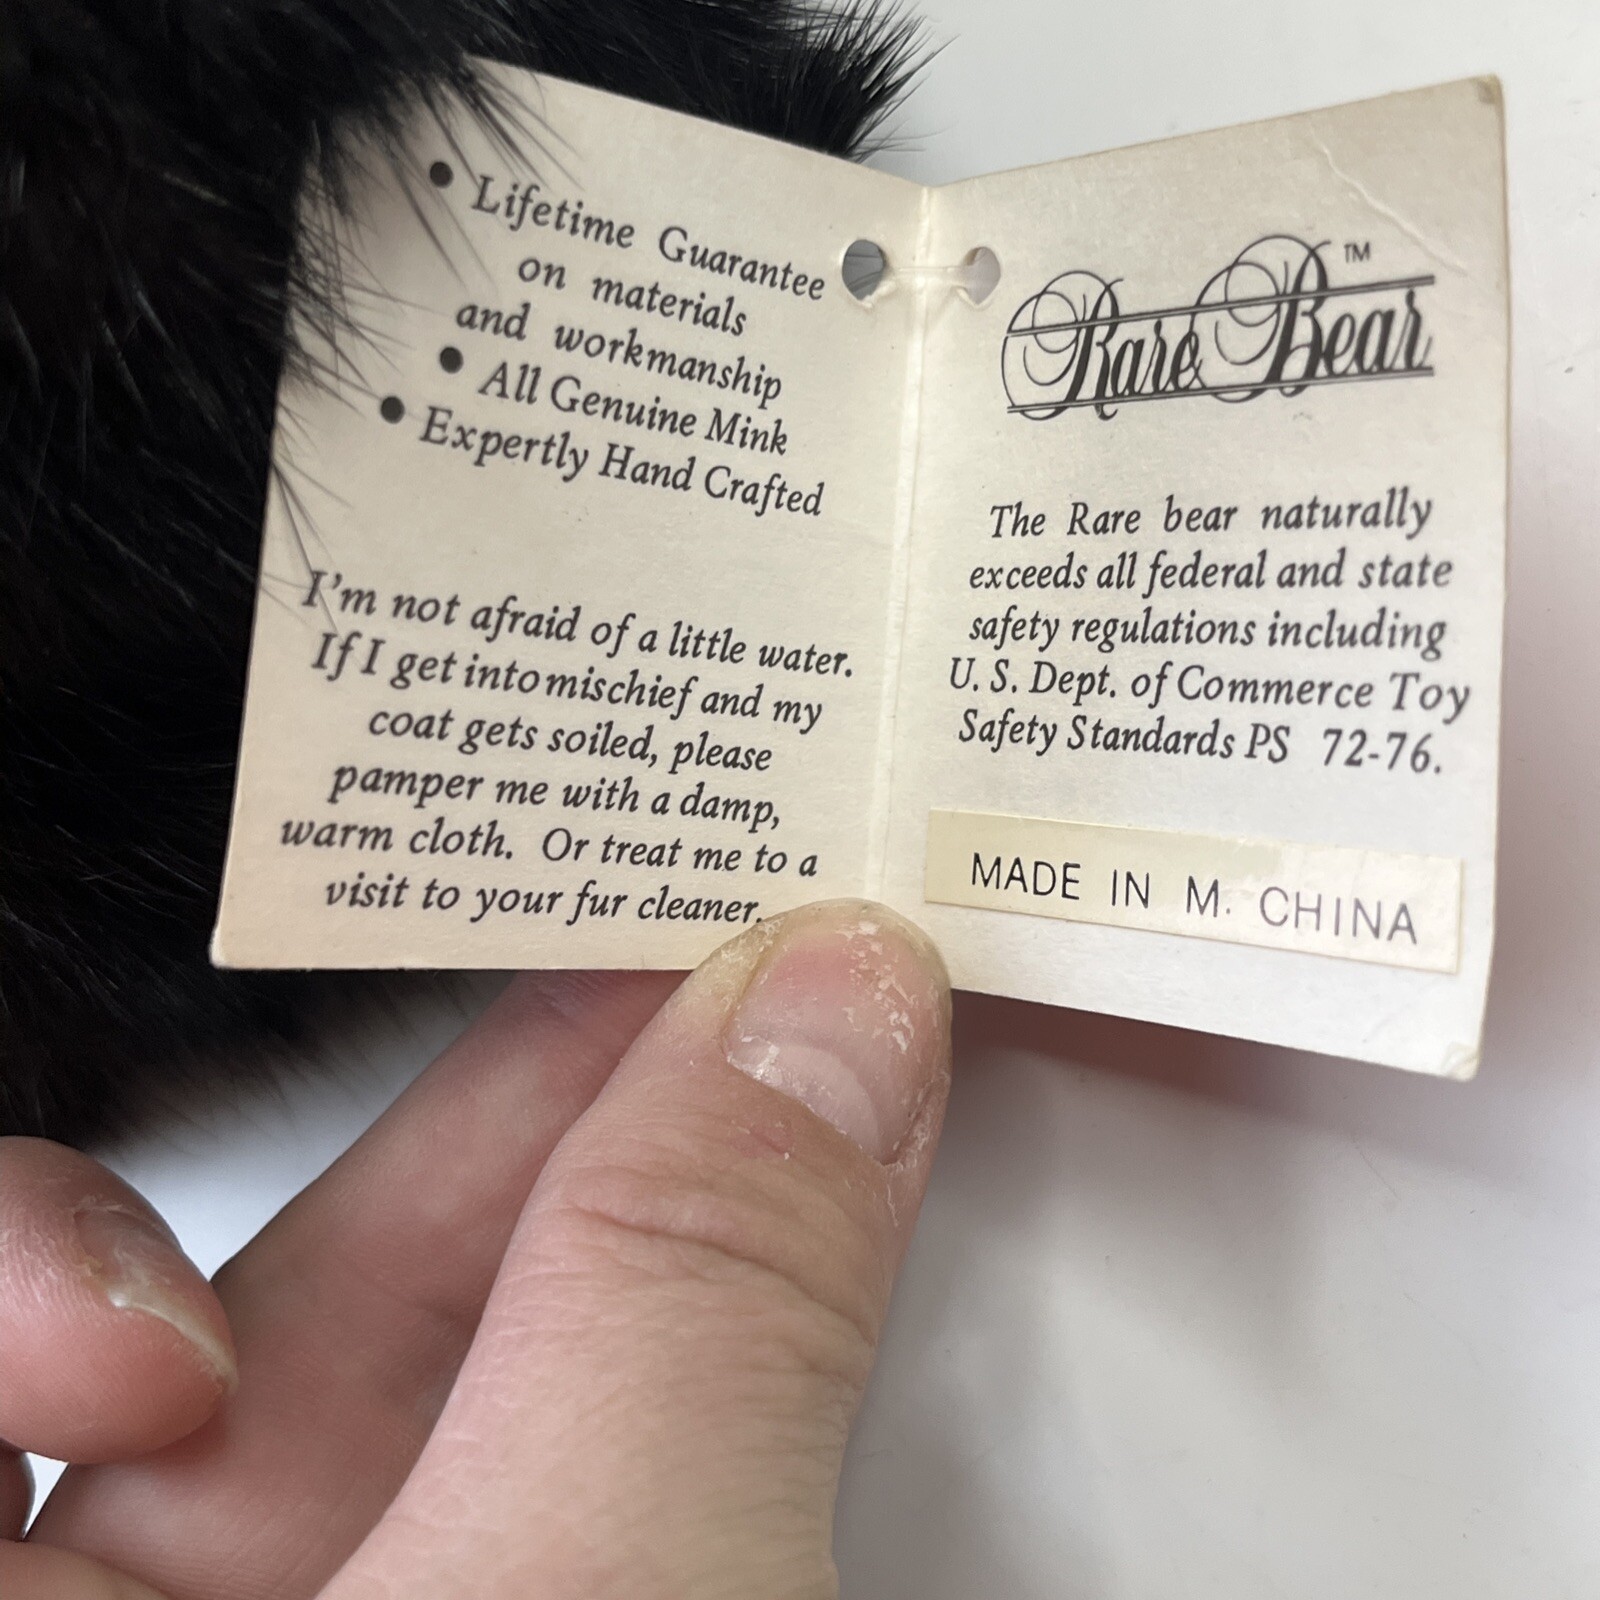 • Lifetime Guarantee
on materials
and workmanship
• All Genuine Mink
• Expertly Hand Crafted
I'm not afraid of a little water.
If I get into mischief and my
coat gets soiled, please
pamper me with a damp,
warm cloth. Or treat me to a
visit to your fur cleaner.
Rare Bear™
The Rare bear naturally
exceeds all federal and state
safety regulations including
U. S. Dept. of Commerce Toy
Safety Standards PS 72-76.
MADE IN M. CHINA